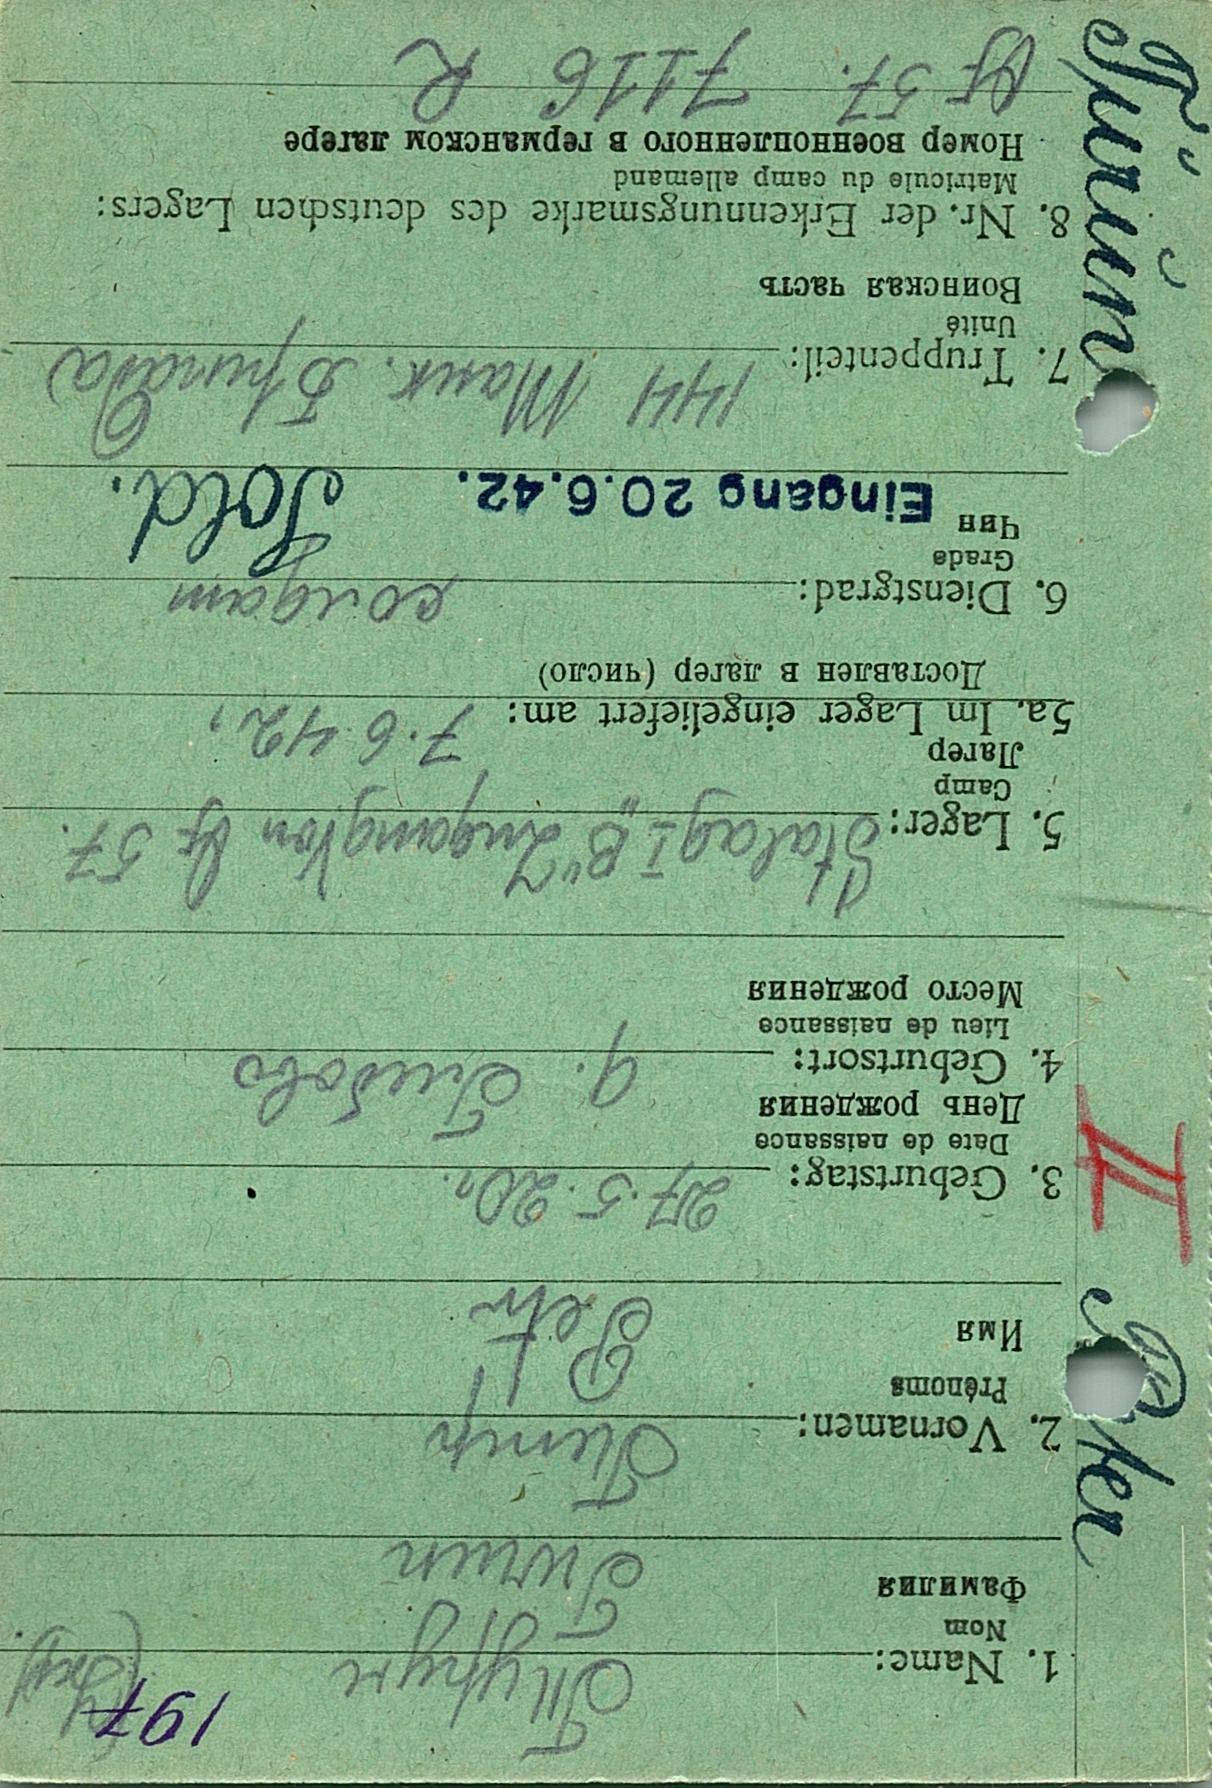 197
1. Name:
Nom
Фамилия
2. Vornamen:
Prénoms
Имя
Petr
3. Geburtstag: 27. 5. 20.
Date de naissance
День рождения
4. Geburtsort:
Lieu de naissance
Место рождения
5. Lager: Stalag I „B" Zugang von 57.
Camp
Лагер
5a. Im Lager eingeliefert am: 7. 6 42.
Доставлен в лагер (число)
6. Dienstgrad: солдат
Grade
Чин
Eingang 20.6.42. Sold.
7. Truppenteil: 144 Бригада
Unité
Воинская часть
8. Nr. der Erkennungsmarke des deutschen Lagers:
Matricule du camp allemand
Номер военнопленного в германском лагере
57. 7116 R
II